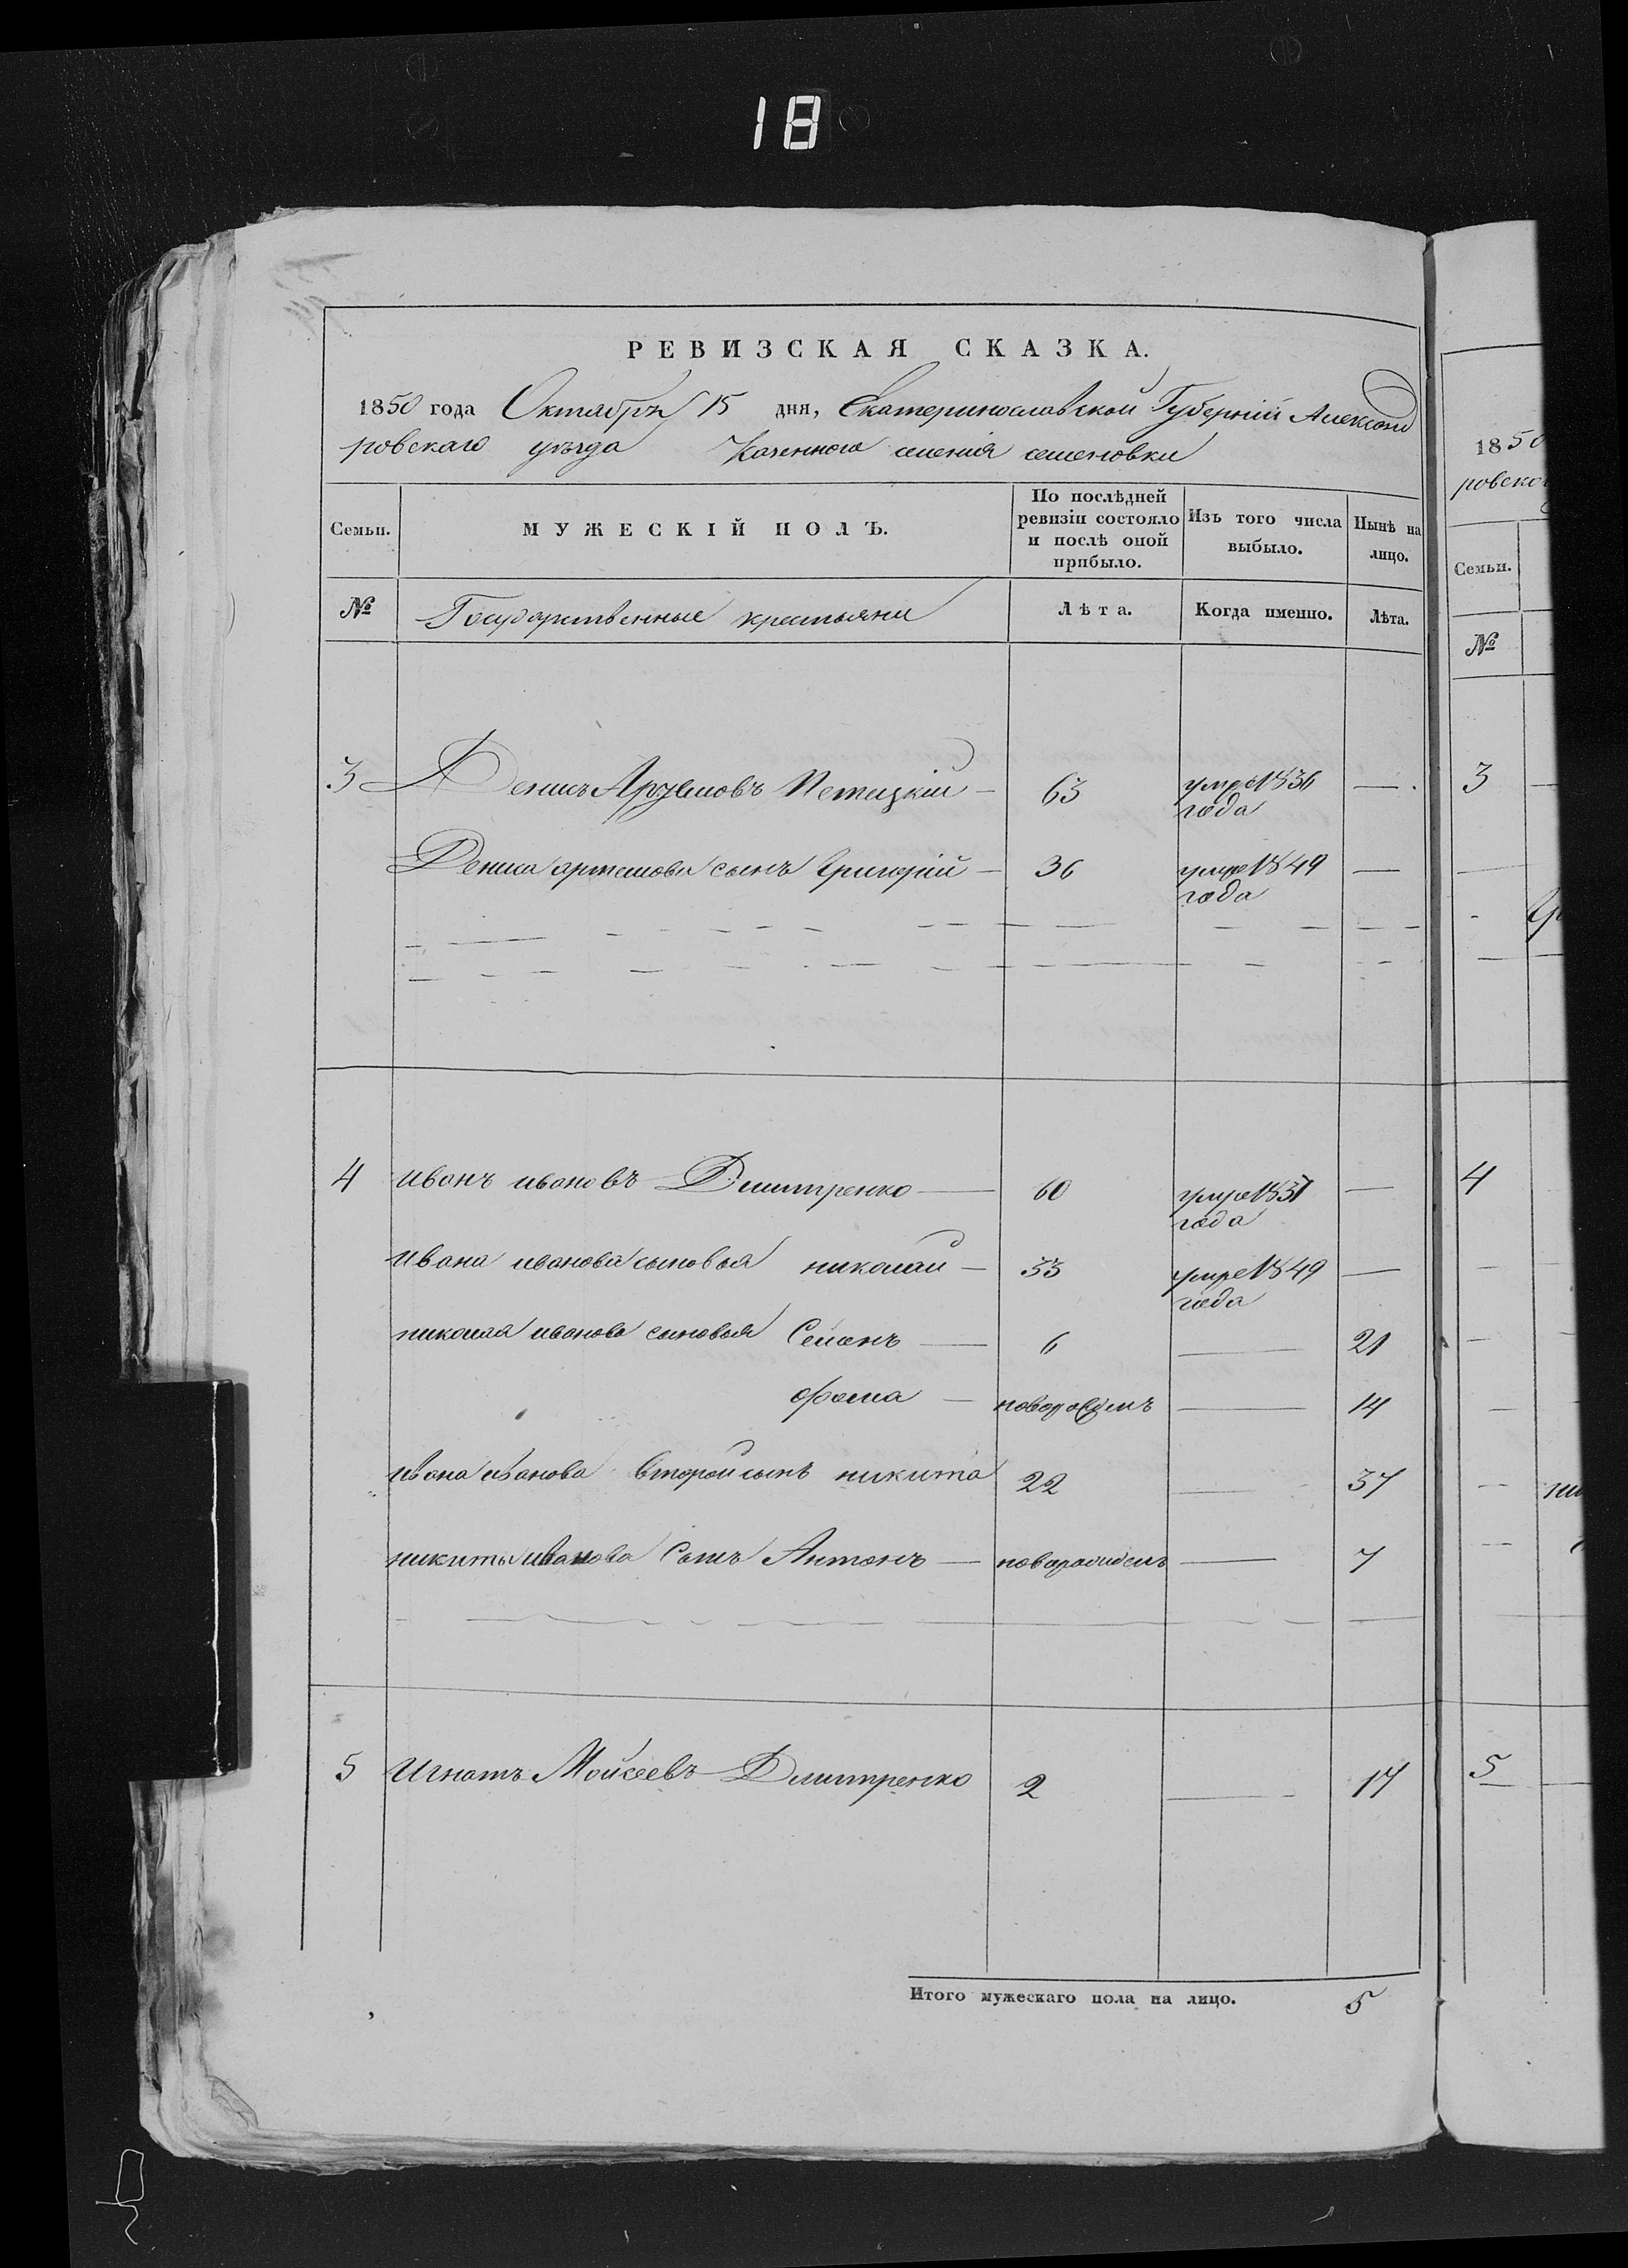 18
РЕВИЗСКАЯ СКАЗКА.
1850 года Октября 15 дня, Екатеринославской Губерніи Александ
ровскаго уѣзда Казенного селенія семеновки
Семьи.
МУЖЕСКІЙ ПОЛЪ.
По послѣдней ревизіи состояло и послѣ оной прибыло.
Изъ того числа выбыло.
Нынѣ на лицо.
№
Государственные крестьяни
Лѣта.
Когда именно.
Лѣта.
3 Денисъ 63 умре 1836
года
Дениса артемова сынъ Григорій 36 умре 1849
года
4 иванъ ивановъ Дмитренко 60 умре 1837
года
ивана иванова сыновья николай 33 умре 1849
года
николая иванова сыновья Семенъ 6 21
фома 14
ивана иванова второй сынъ никита 22 37
никиты иванова Сынъ Антонъ 7
5 Игнатъ Мойсеевъ Дмитренко 2 17
Итого мужескаго пола на лицо. 5
1850
Семьи.
№
3
4
5